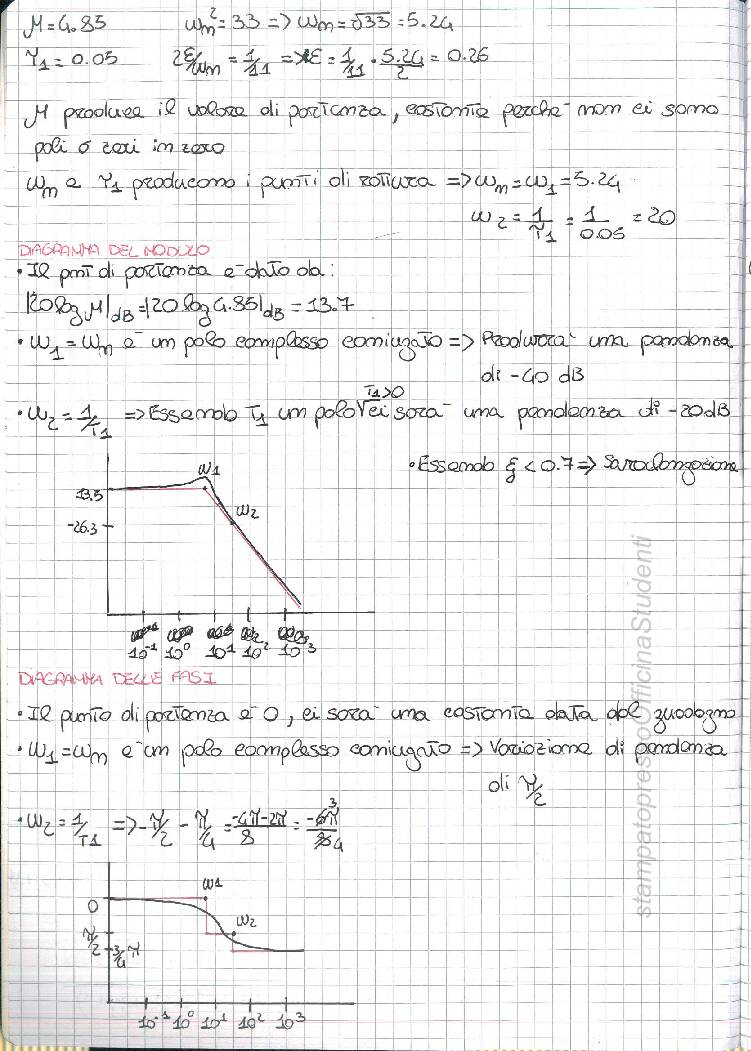 μ=4.85 ωn²=33 => ωn=√33=5.24
τ1=0.05 2ξ/ωn=1/11 => ξ=1/11·5.24/2=0.26
μ produce il valore di partenza, costante perchè non ci sono
poli o zeri in zero
ωn e τ1 producono i punti di rottura => ωn=ω1=5.24
ω2=1/τ1=1/0.05=20
DIAGRAMMA DEL MODULO
• Il pnt di partenza è dato da:
|20log μ|dB=|20log 4.85|dB=13.7
• ω1=ωn è un polo complesso coniugato => Produrrà una pendenza
di -40 dB
τ1>0
• ω2=1/τ1 => Essendo τ1 un polo √ ci sarà una pendenza di -20dB
• Essendo ξ<0.7 =>
ω1
13.5
ω2
-26.3
10⁻¹ 10⁰ 10¹ 10² 10³
DIAGRAMMA DELLE FASI
• Il punto di partenza è 0, ci sarà una costante data dal guadagno
• ω1=ωn è un polo complesso coniugato => Variazione di pendenza
di π/2
• ω2=1/τ1 => -π/2 - π/4 = -4π-2π/8 = -6π/8 3 4
ω1
0
ω2
π/2
3/4π
10⁻¹ 10⁰ 10¹ 10² 10³
stampatopressoOfficinaStudenti